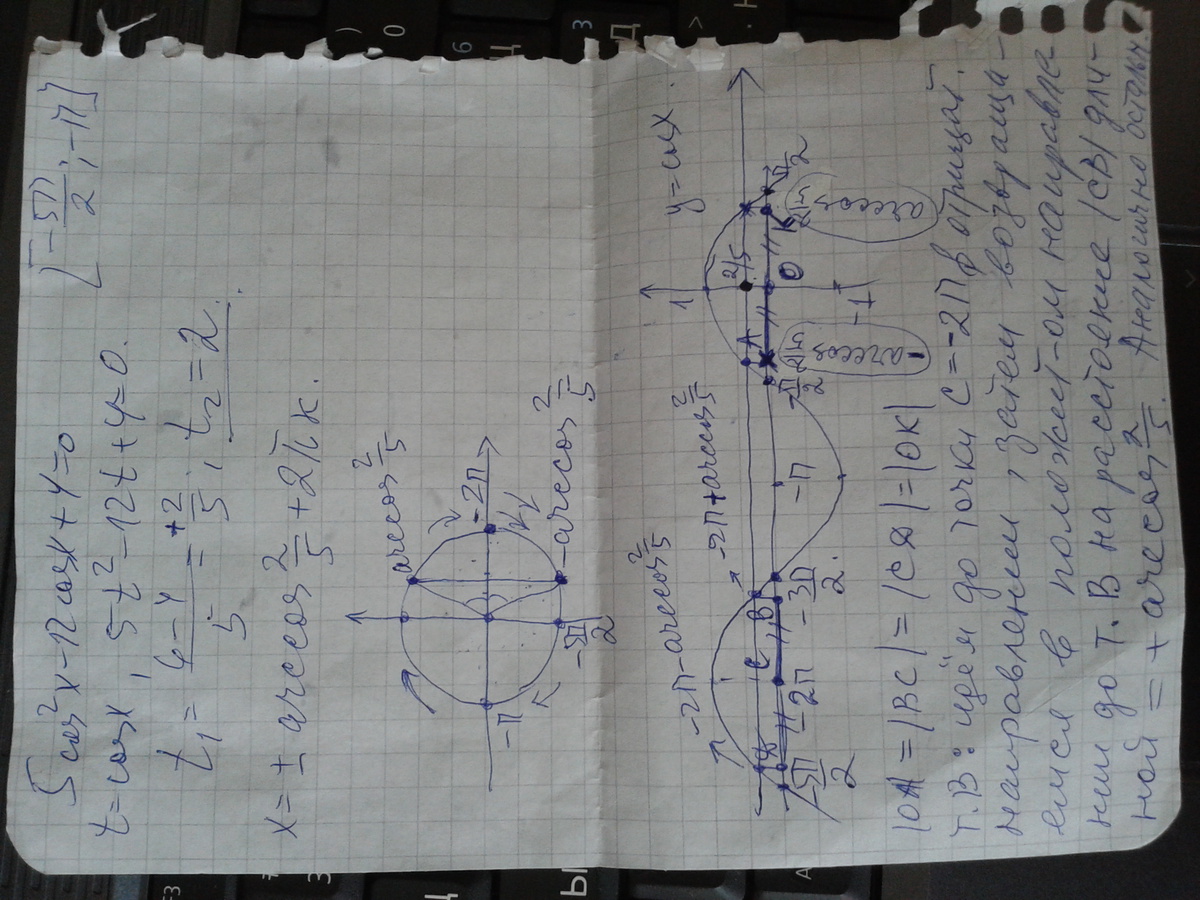 5 cos²x - 12 cosx + 4 = 0
[-5π/2; -π]
t = cosx, 5t² - 12t + 4 = 0.
t₁ = (6-4)/5 = +2/5; t₂ = 2.
x = ± arccos 2/5 + 2πk.
arccos 2/5
-π
-2π
-arccos 2/5
-5π/2
-2π - arccos 2/5
-2π + arccos 2/5
1
y = cosx.
2/5
D
C
B
A
O
K
-5π/2
-2π
-3π/2
-π
-π/2
π/2
-1
-arccos 2/5
arccos 2/5
|OA| = |BC| = |CD| = |OK|
т. В: идём до точки C = -2π в отрицат.
направлении, затем возвраща-
емся в положит-ом направле
нии до т. В на расстояние |CB| дли-
ной = + arccos 2/5. Аналогично остальн.